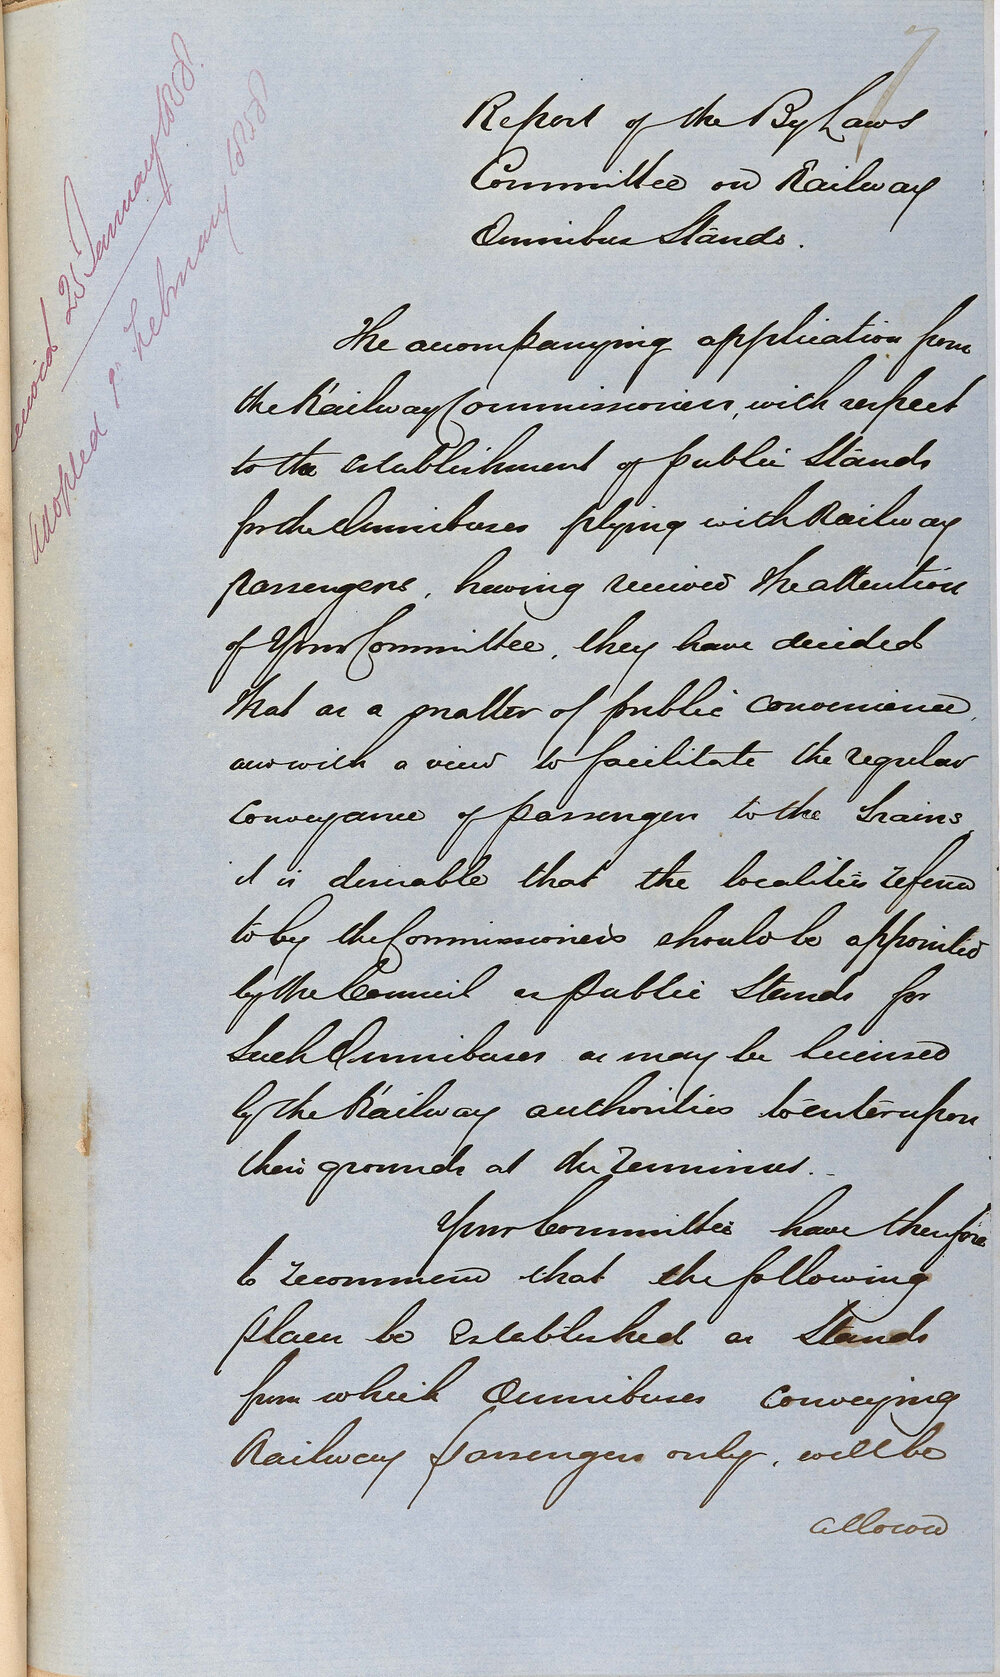 7
Report of the By Laws
Committee on Railway
Omnibus Stands.
Received 25 January 1858.
Adopted 1st February 1858
The accompanying application from
the Railway Commissioners, with respect
to the establishment of public Stands
for the Omnibuses plying with Railway
passengers, having received the attention
of Your Committee, they have decided
that as a matter of public convenience,
and with a view to facilitate the regular
conveyance of passengers to the trains,
it is desirable that the localities referred
to by the Commissioners should be appointed
by the Council as public Stands for
such Omnibuses as may be licensed
by the Railway authorities to enter upon
their grounds at the Terminus.
Your Committee have therefore
to recommend that the following
places be Established as Stands
from which Omnibuses conveying
Railway passengers only, will be
allowed